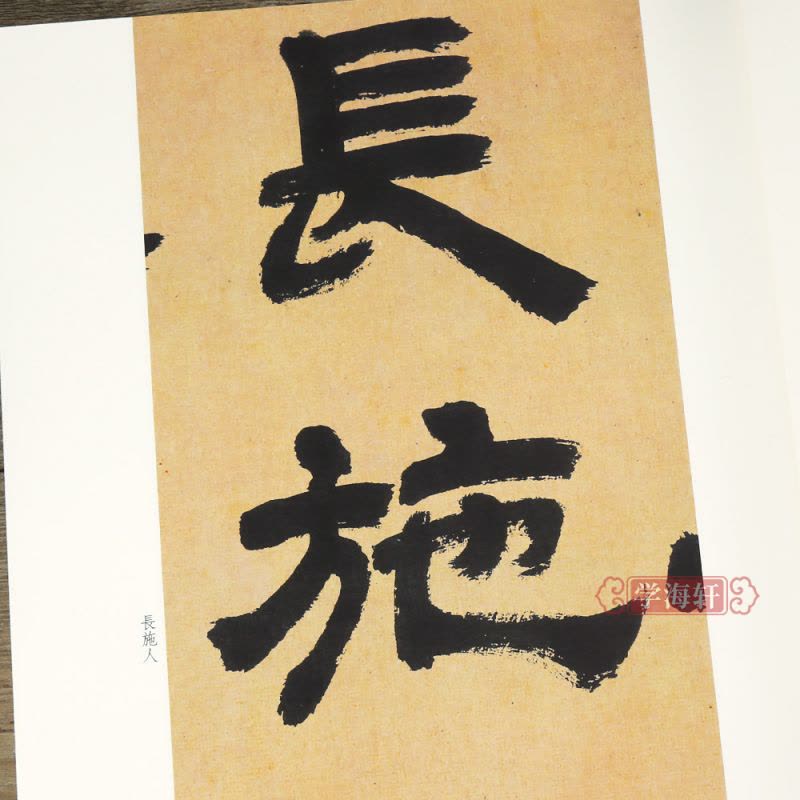 長
施
長施人
学海轩